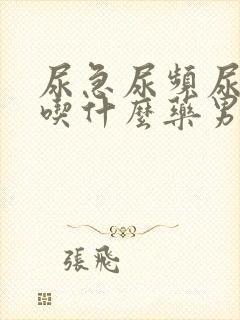 尿急尿頻尿
喫什麼藥男
張飛